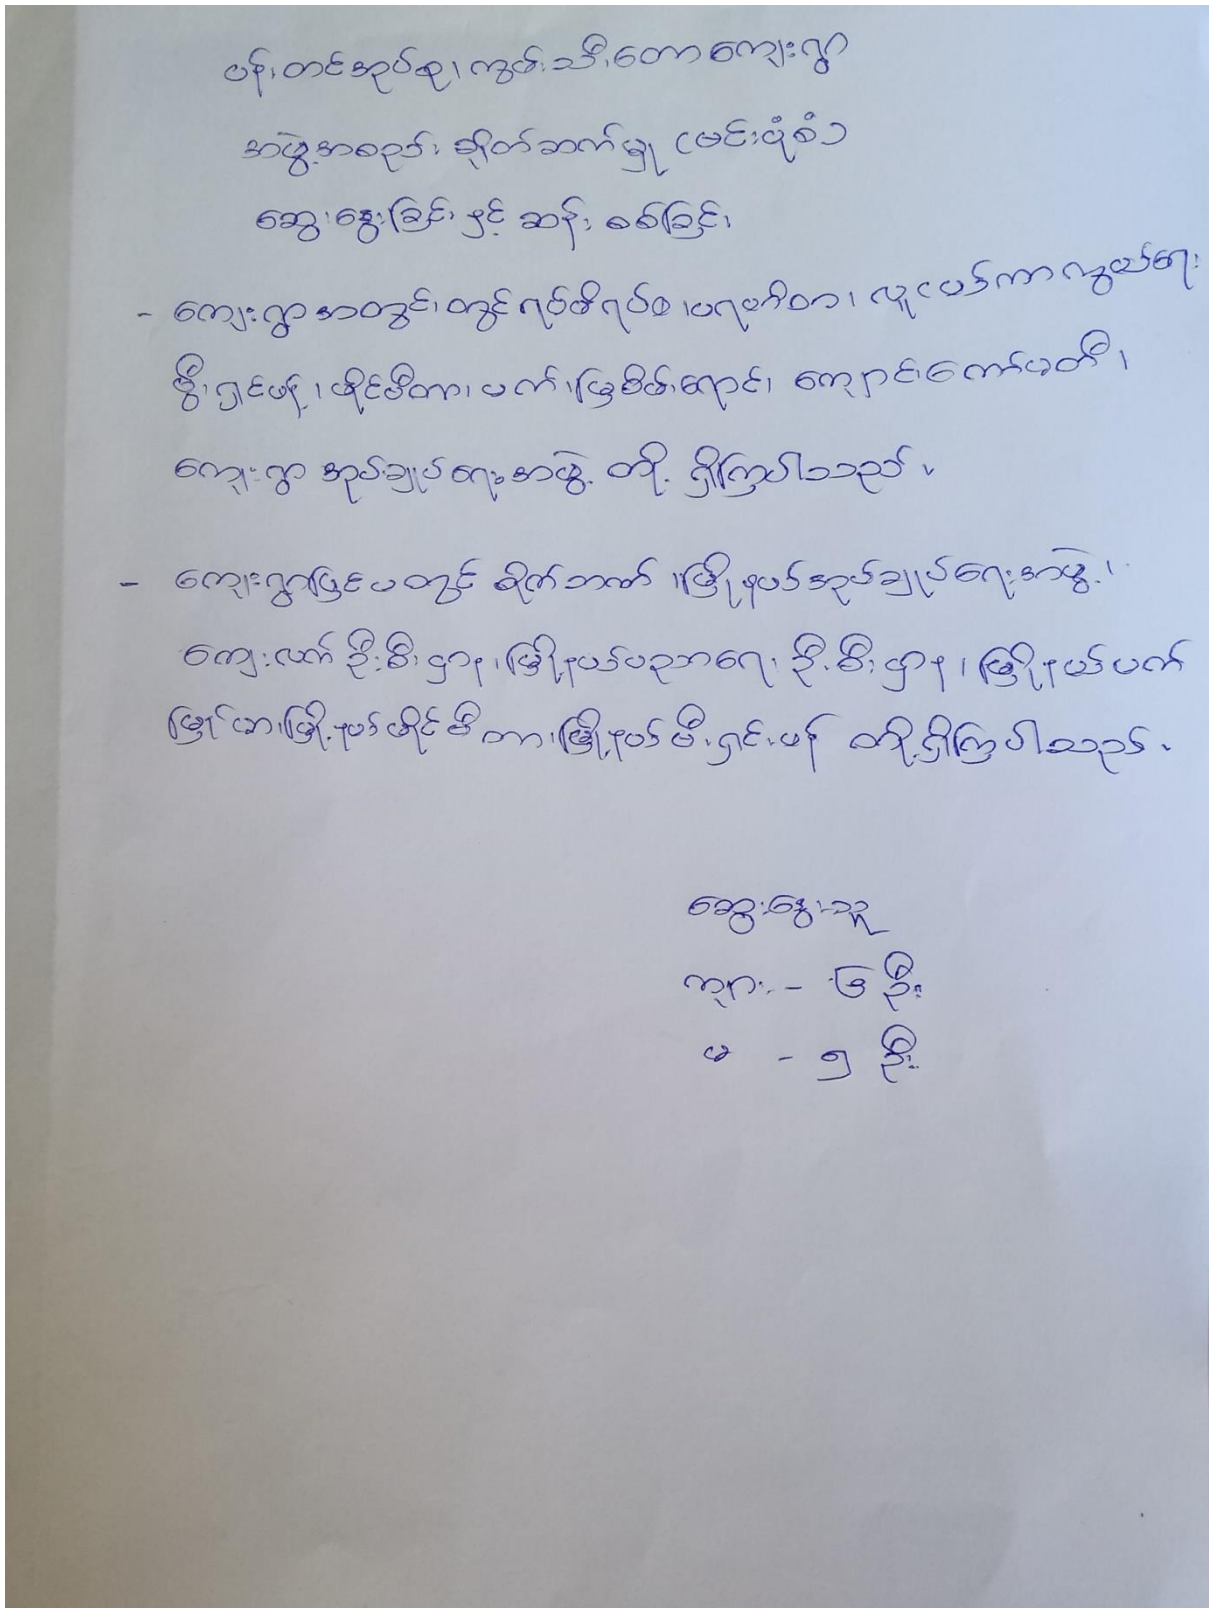 ပန်းတင်အုပ်စု၊ ကွမ်းသီးတောကျေးရွာ
အဖွဲ့အစည်း ချိတ်ဆက်မှု (မင်းပုံစံ)
ဆွေးနွေးခြင်း နှင့် ဆန်းစစ်ခြင်း
- ကျေးရွာအတွင်းတွင် ရပ်မိရပ်ဖ၊ ပရဟိတ၊ လူငယ်ကာကွယ်ရေး
မီးရှင်ဖန့်၊ ဖိုင်မီတာ၊ ပက်ဖြူစိမ်းရောင်၊ ကျောင်းကော်မတီ၊
ကျေးရွာ အုပ်ချုပ်ရေးအဖွဲ့ တို့ ရှိကြပါသည်။
- ကျေးရွာပြင်ပတွင် စိုက်ဘဏ်၊ မြို့နယ်အုပ်ချုပ်ရေးအဖွဲ့၊
ကျေးလက်ဦးစီးဌာန၊ မြို့နယ်ပညာရေးဦးစီးဌာန၊ မြို့နယ်ပက်
မြို့နယ်ဖိုင်မီတာ၊ မြို့နယ်မီးရှင်းဖန် တို့ရှိကြပါသည်။
ဆွေးနွေးသူ
ကျား - ၆ ဦး
မ - ၅ ဦး